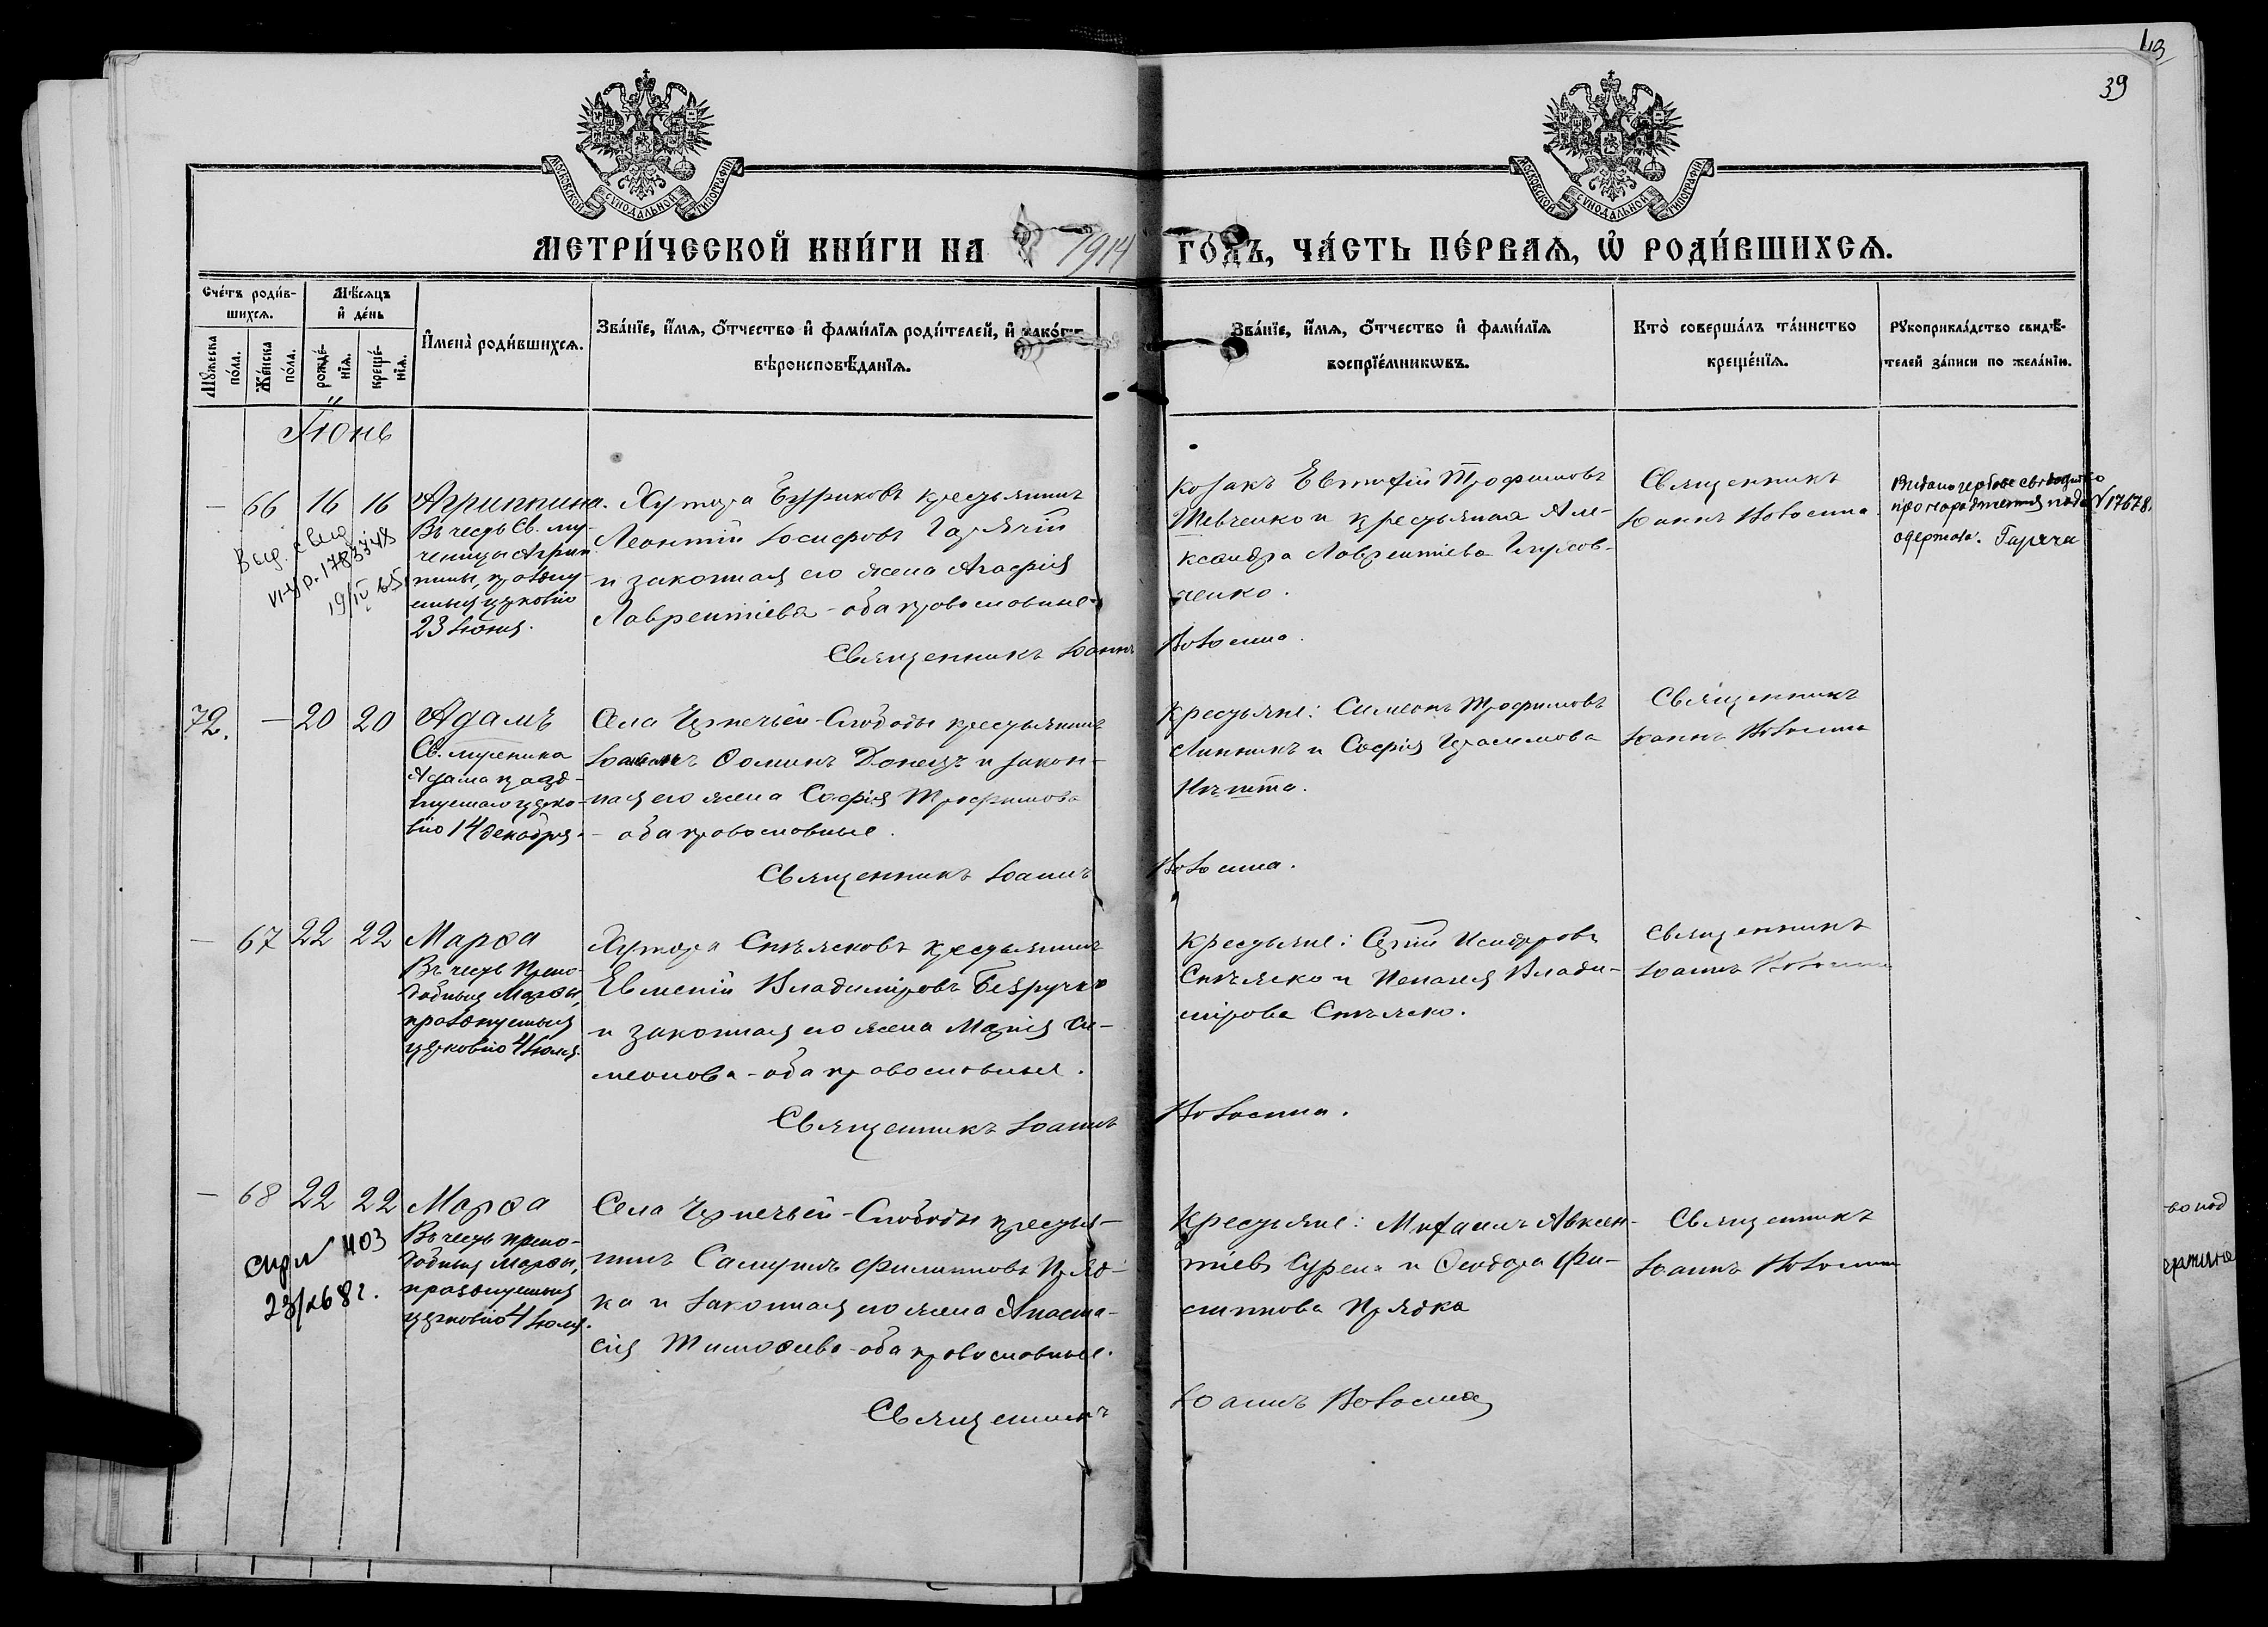 39
МОСКОВСКОЙ СѴНОДАЛЬНОЙ ТИПОГРАФІИ
МОСКОВСКОЙ СѴНОДАЛЬНОЙ ТИПОГРАФІИ
МЕТРИ́ЧЕСКОЙ КНИ́ГИ НА 1914 ГО́ДЪ, ЧА́СТЬ ПЕ́РВАѦ, Ѡ҆ РОДИ́ВШИХСѦ.
Сче́тъ роди́в-
шихсѧ.
Мꙋ́жеска
по́ла.
Же́нска
по́ла.
Мѣ́сѧцъ
и҆ де́нь
рожде́-
нїѧ.
креще́-
нїѧ.
И҆мена̀ роди́вшихсѧ.
Зва́нїе, и҆́мѧ, ѻ҆́тчество и҆ фами́лїѧ роди́телей, и҆ како́гѡ
вѣроисповѣ́данїѧ.
Зва́нїе, и҆́мѧ, ѻ҆́тчество и҆ фами́лїѧ
воспрїе́мникѡвъ.
Кто̀ соверша́лъ та́инство
креще́нїѧ.
Рꙋкоприкла́дство свидѣ́-
телей за́писи по жела́нїю.
Іюнь
— 66 16 16
Агриппина.
Въ честь Св. му-
ченицы Агрип
пины, праздну-
емыя церковію
23 Іюня.
19/IV 65
Хутора Буриковъ крестьянинъ
Леонтій Іосифовъ Гарячій
и законная его жена Агафія
Лаврентіева - оба православные.
Священникъ Іоаннъ Волосина.
Козакъ Евтихій Трофимовъ
Шевченко и крестьянка Але-
ксандра Лаврентіева
ченко.
Священникъ
Іоаннъ Волосина
одержала. Гаряча
№ 17678.
72. — 20 20
Адамъ
Св. мученика
Адама празд-
нуемаго церко-
вію 14 декабря.
Села Черпечьей-Слободы крестьянинъ
Ѳоминъ Донецъ и закон-
ная его жена Софія Трофимова
- оба православные.
Священникъ Іоаннъ Волосина.
Крестьяне: Симеонъ Трофимовъ
Линникъ и Софія Герасимова
Священникъ
Іоаннъ Волосина
— 67 22 22
Марѳа
Въ честь Препо-
добныя Марѳы,
празднуемыя
церковію 4 Іюля.
Хутора Стеъжковъ крестьянинъ
Евменій Владиміровъ Безручко
и законная его жена Марія Си-
меонова - оба православные.
Священникъ Іоаннъ Волосина.
Крестьяне: Сергій Исидоровъ
Стеъжко и Пелагія Влади-
мірова Стеъжко.
Священникъ
Іоаннъ Волосина
— 68 22 22
403
Марѳа
Въ честь препо-
добныя Марѳы,
празднуемыя
церковію 4 Іюля.
Села Черпечьей-Слободы крестья-
нинъ Самуилъ Филипповъ Пряд-
ка и законная его жена Анаста-
сія Тимоѳеева - оба православные.
Священникъ Іоаннъ Волосина
Крестьяне: Михаилъ Авксен-
тіевъ и Ѳеодора Фи-
липпова Прядка
Священникъ
Іоаннъ Волосина